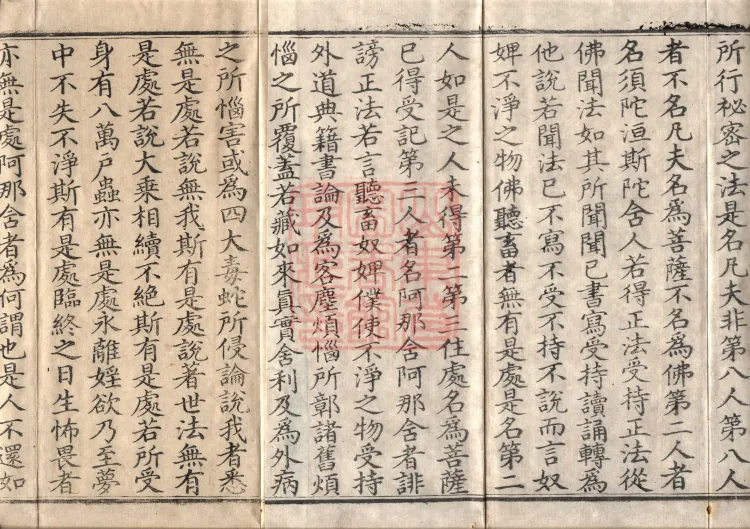 所行祕密之法是名凡夫非第八人第八人
者不名凡夫名為菩薩不名為佛第二人者
名須陀洹斯陀含人若得正法受持正法從
佛聞法如其所聞聞已書寫受持讀誦轉為
他說若聞法已不寫不受不持不說而言奴
婢不淨之物佛聽畜者無有是處是名第二
人如是之人未得第二第三住處名為菩薩
已得受記第三人者名阿那含阿那含者誹
謗正法若言聽畜奴婢僕使不淨之物受持
外道典籍書論及為客塵煩惱所鄣諸舊煩
惱之所覆蓋若藏如來真實舍利及為外病
之所惱害或為四大毒蛇所侵論說我者悉
無是處若說無我斯有是處說著世法無有
是處若說大乘相續不絕斯有是處若所受
身有八萬戶蟲亦無是處永離婬欲乃至夢
中不失不淨斯有是處臨終之日生怖畏者
亦無是處阿那含者為何謂也是人不還如